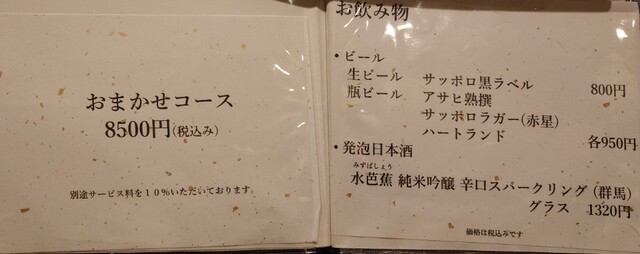 おまかせコース
8500円(税込み)
別途サービス料を10%いただいております。
お飲み物
・ビール
生ビール サッポロ黒ラベル 800円
瓶ビール アサヒ熟撰
サッポロラガー(赤星)
ハートランド 各950円
・発泡日本酒
みずばしょう
水芭蕉 純米吟醸 辛口スパークリング (群馬)
グラス 1320円
価格は税込みです